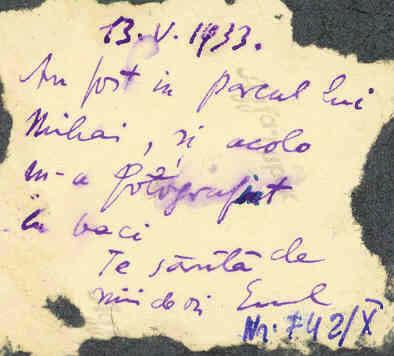 13.V.1933.
Am fost in parcul lui
Mihai, și acolo
m-a fotografiat
în
Te sărută de
mii de ori Emil
Nr. 742/X